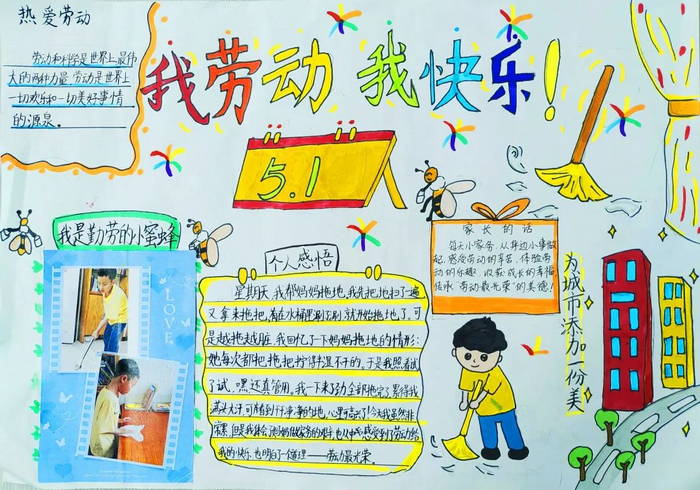 热爱劳动
劳动和科学是世界上最伟
大的两种力量 劳动是世界上
一切欢乐和一切美好事情
的源泉。
我劳动 我快乐！
5.1
我是勤劳的小蜜蜂
LOVE
个人感悟
星期天，我帮妈妈拖地，我先把地扫了遍
又拿来拖把，在水桶里涮了涮就开始拖地了，可
是越拖越脏，我回忆了下妈妈拖地的情形：
她每次都把拖把拧得半湿不干的。于是我照着试
了试，嘿，还真管用，我一下来了劲
满头大汗，可
我的快乐，也明白了一个道理——劳动最光荣。
家长的话
每天小家务，从身边小事做
起，感受劳动的辛苦，体验劳
动的乐趣，收获成长的幸福
传承"劳动最光荣"的美德！
为城市添加一份美